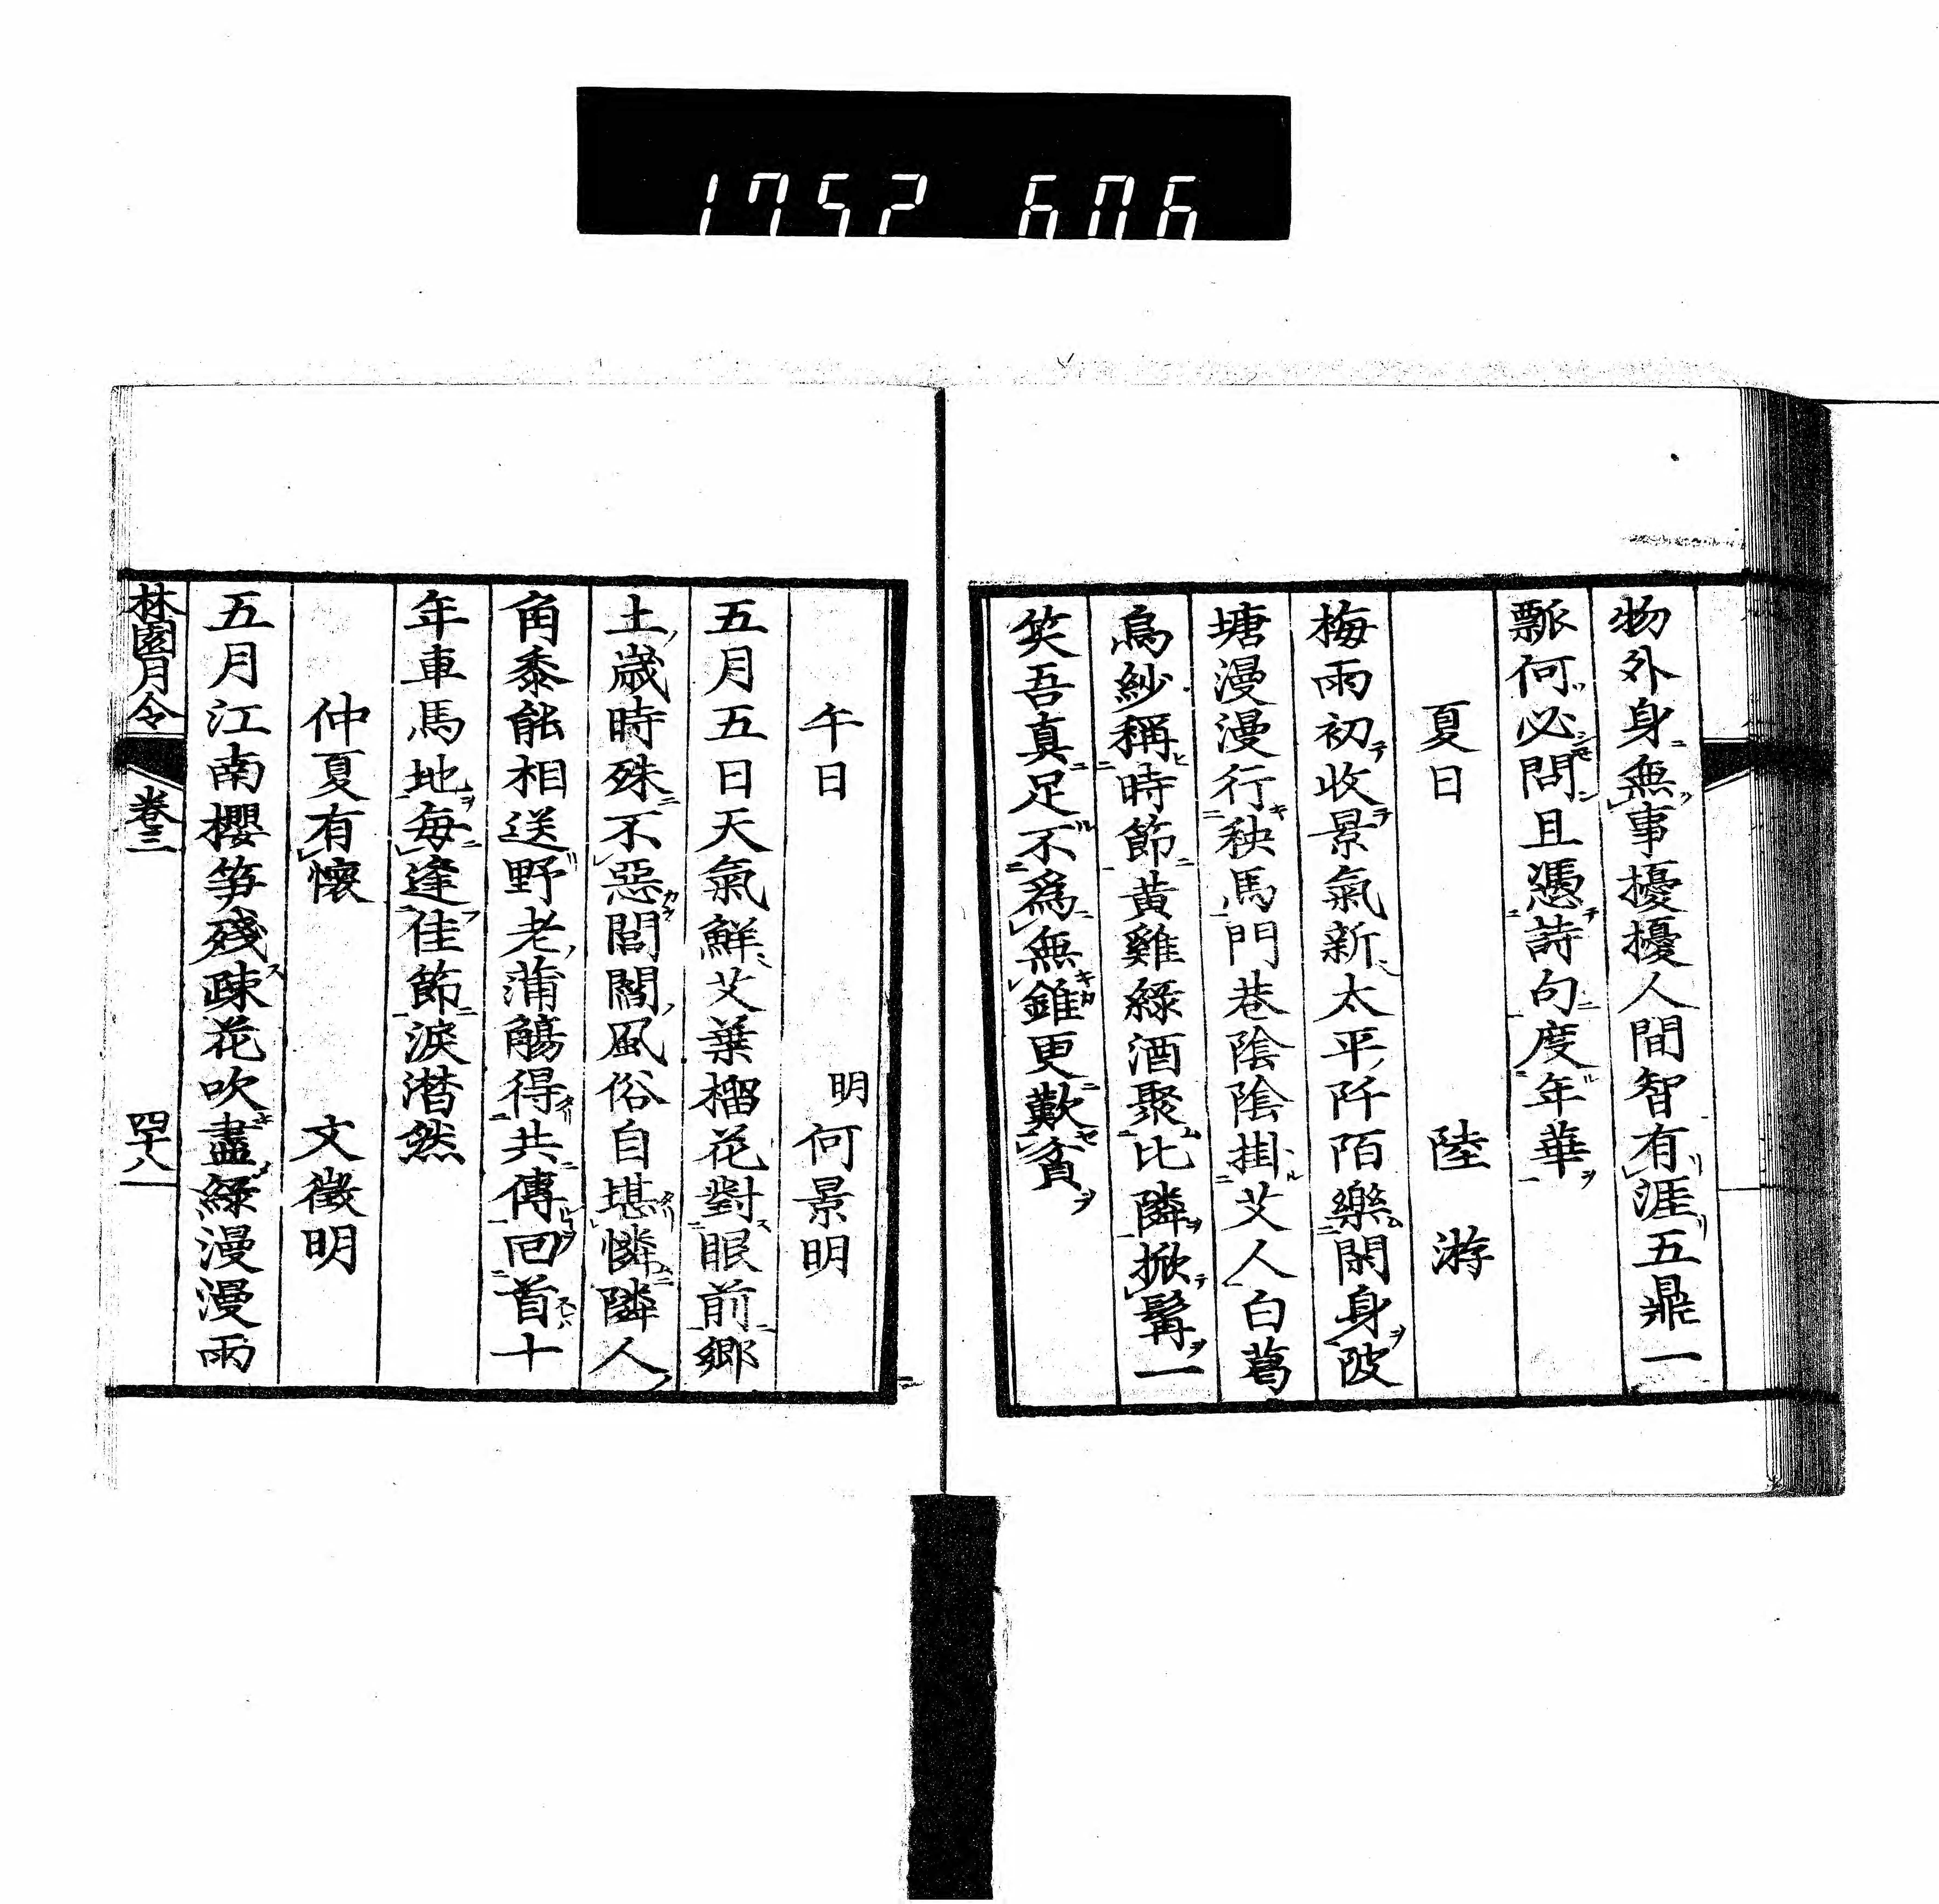 1752 606
物外身無事擾擾人間智有涯五鼎一
瓢何必問且憑詩句度年華
夏日　陸游
梅雨初收景氣新太平阡陌樂閑身陂
塘漫漫行秧馬門巷陰陰掛艾人白葛
烏紗稱時節黃雞綠酒聚比隣掀髯一
笑吾真足不爲無錐更歎貧
午日　明何景明
五月五日天氣鮮艾葉榴花對眼前鄉
土歲時殊不惡閭閻風俗自堪憐隣人
角黍能相送野老蒲觴得共傳回首十
年車馬地每逢佳節淚潸然
仲夏有懷　文徵明
五月江南櫻笋殘疎花吹盡綠漫漫雨
林園月令　卷三　四十八